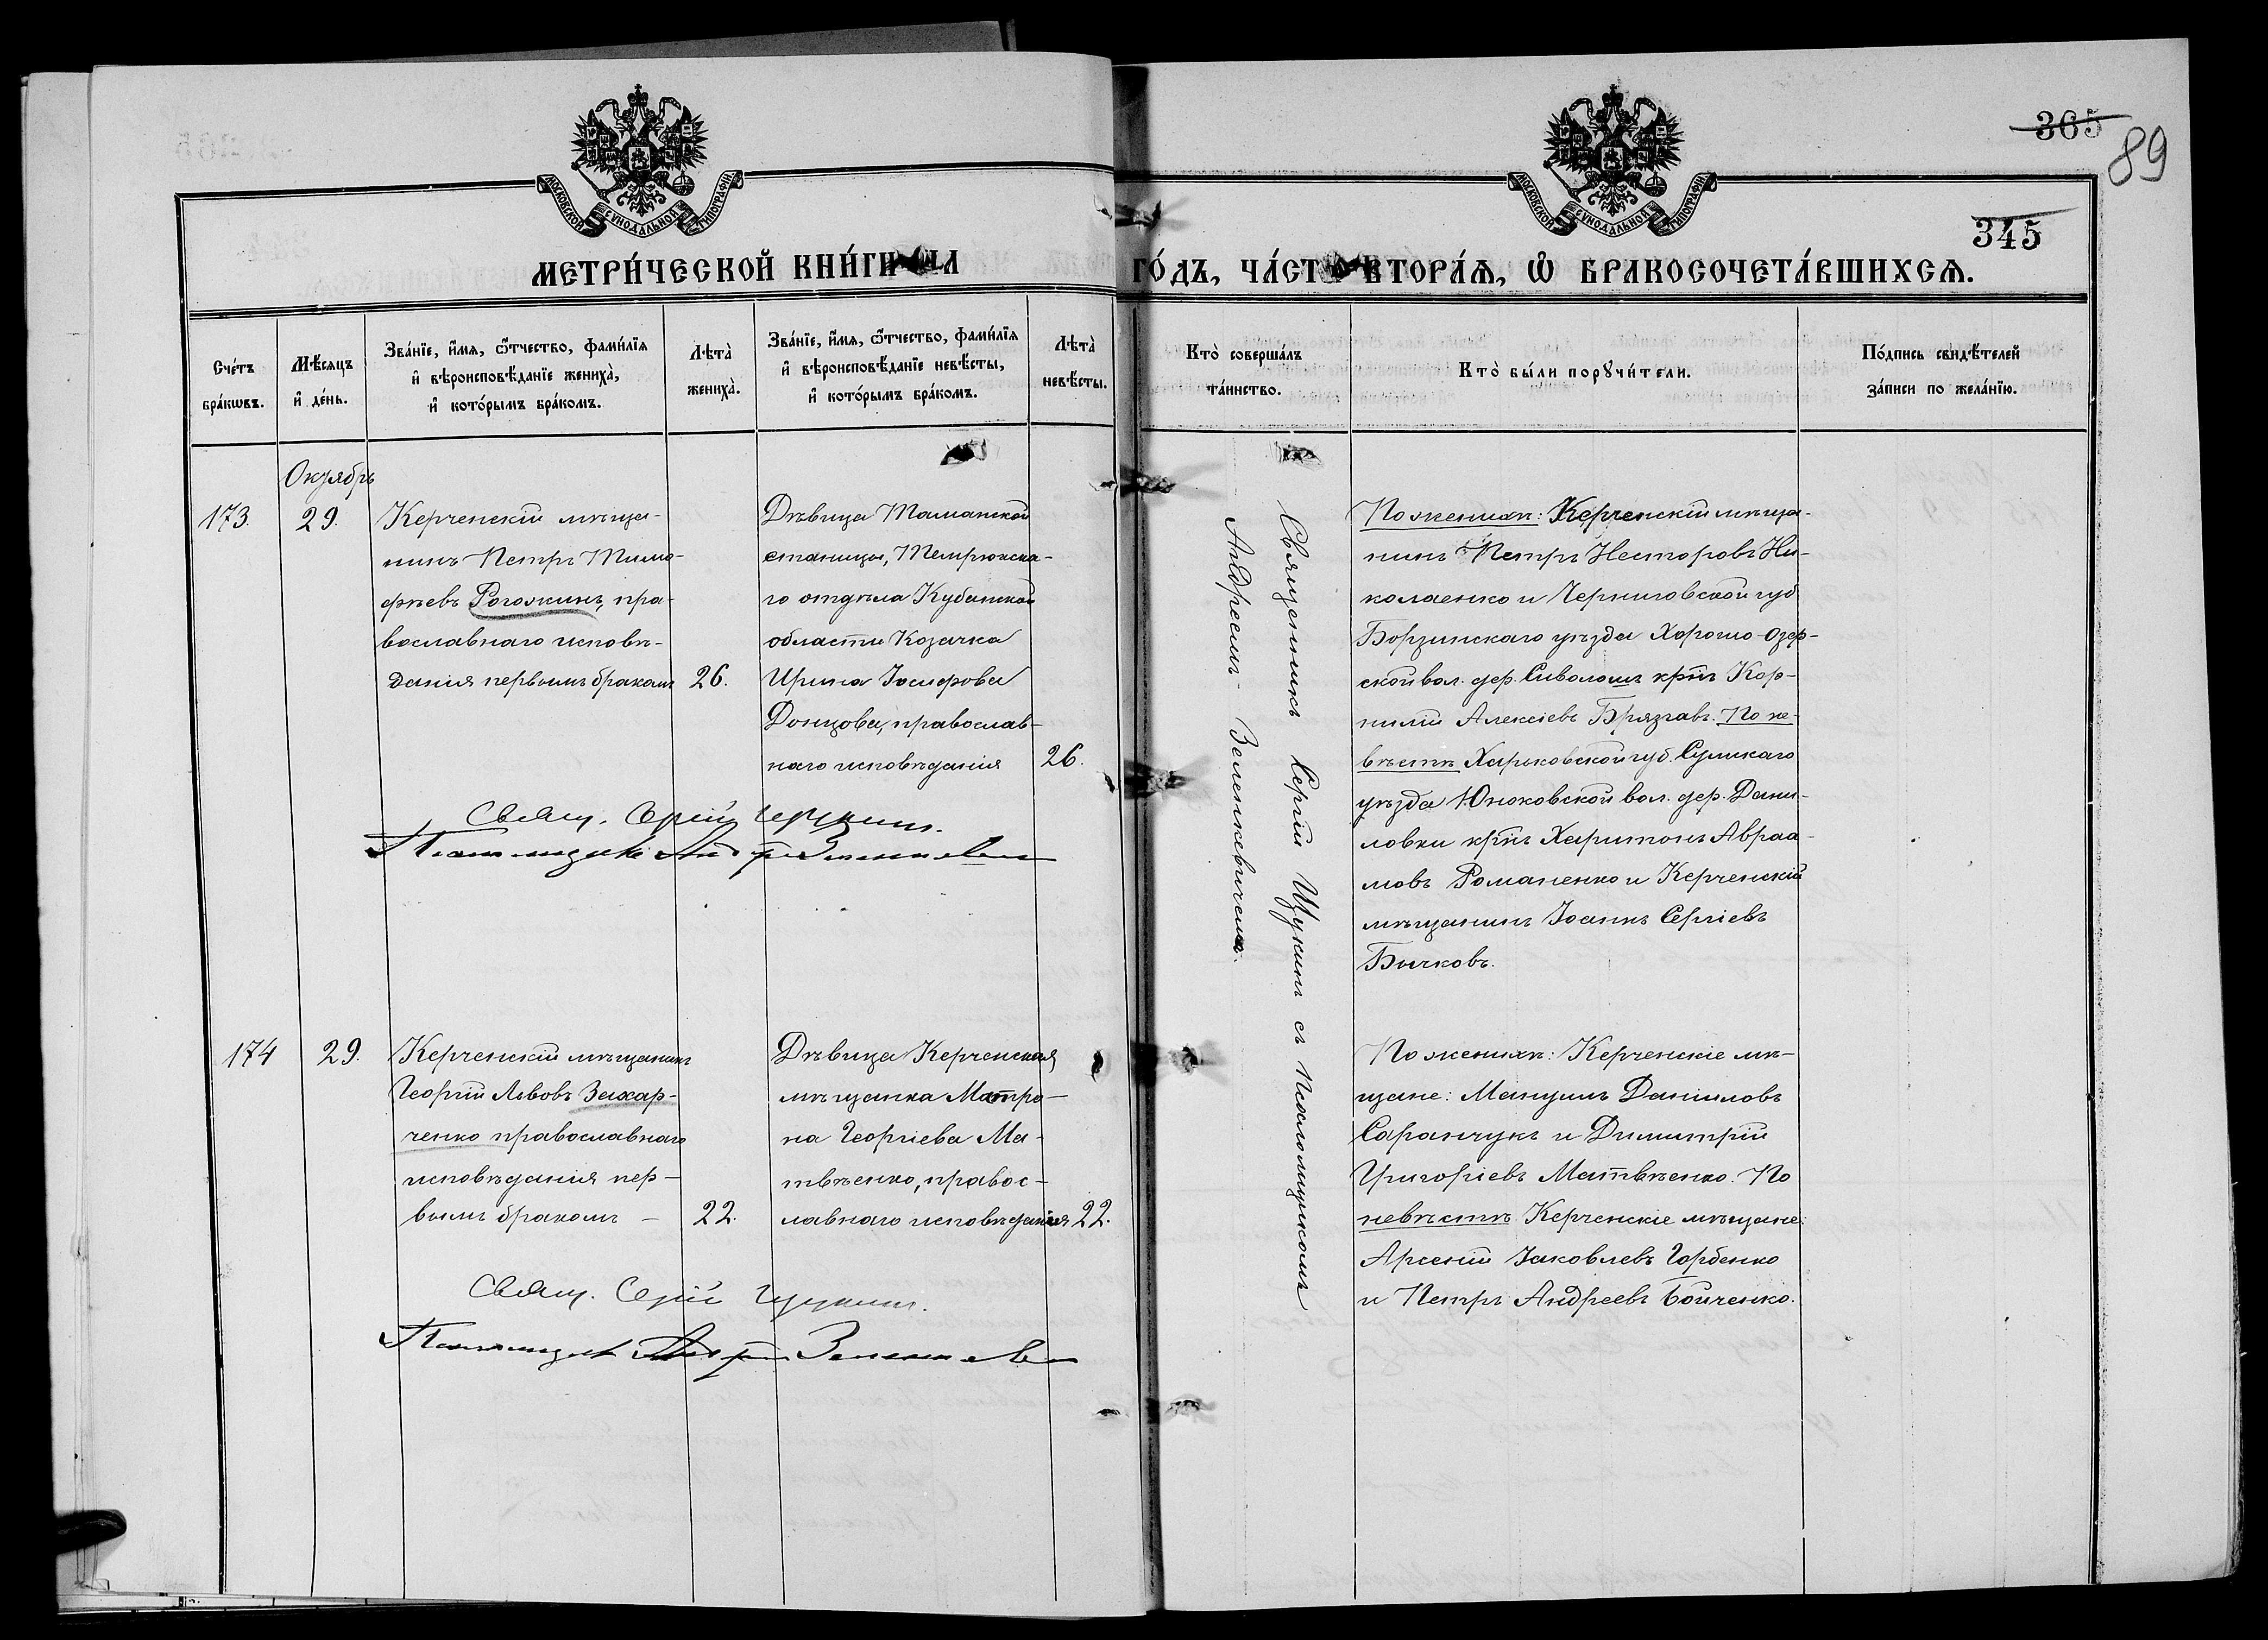 365
89
345
МОСКОВСКОЙ СУНОДАЛЬНОЙ ТИПОГРАФІИ
МОСКОВСКОЙ СУНОДАЛЬНОЙ ТИПОГРАФІИ
МЕТРИ́ЧЕСКОЙ КНИ́ГИ НА
ГО́ДЪ, ЧА́СТЬ ВТОРА́Ѧ, Ѽ БРАКОСОЧЕТА́ВШИХСѦ.
Сче́тъ
бра́кѡвъ.
Мѣ́сяцъ
и҆ де́нь.
Зва́нїе, и҆́мя, ѻ҆́тчество, фами́лїя
и҆ вѣроисповѣ́данїе жениха̀,
и҆ кото́рымъ бра́комъ.
Лѣта̀
жениха̀.
Зва́нїе, и҆́мя, ѻ҆́тчество, фами́лїя
и҆ вѣроисповѣ́данїе невѣ́сты,
и҆ кото́рымъ бра́комъ.
Лѣта̀
невѣ́сты.
Кто̀ соверша́лъ
та́инство.
Кто̀ бы́ли порꙋчи́тели.
По́дпись свидѣ́телей
за́писи по жела́нїю.
Октябрь
173.
29.
Керченскій мѣща-
нинъ Петръ Тимо-
фѣевъ Рогожинъ, пра-
вославнаго исповѣ-
данія первымъ бракомъ
26.
Дѣвица Таманской
станицы, Темрюкска-
го отдѣла Кубанской
области Козачка
Ирина Іосифова
Донцова, православ-
наго исповѣданія
26.
Священникъ Сергій Щукинъ съ Псаломщикомъ
Андреемъ Зеленкевичемъ.
По женихѣ: Керченскій мѣща-
нинъ Петръ Несторовъ Ни-
колаенко и Черниговской губ.
Борзинскаго уѣзда Хорошо-Озер-
ской вол. дер. Сиволошъ крᵗнъ Кор-
нилій Алексіевъ Брязгавъ. По не-
вѣстѣ Харьковской губ. Сумскаго
уѣзда Юнаковской вол. дер. Дани-
ловки крᵗнъ Харитонъ Авраа-
мовъ Романенко и Керченскій
мѣщанинъ Іоаннъ Сергіевъ
Бычковъ.
Свящ. Сергій Щукинъ.
Псаломщикъ Андрей Зеленкевич
174
29.
Керченскій мѣщанинъ
Георгій Львовъ Захар-
ченко православнаго
исповѣданія пер-
вымъ бракомъ —
22.
Дѣвица Керченская
мѣщанка Матро-
на Георгіева Ма-
твѣенко, правос-
лавнаго исповѣданія
22.
По женихѣ: Керченскіе мѣ-
щане: Мануилъ Даніиловъ
Саранчукъ и Димитрій
Григоріевъ Матвѣенко. По
невѣстѣ Керченскіе мѣщане:
Арсеній Іаковлевъ Горбенко
и Петръ Андреевъ Бойченко.
Свящ. Сергій Щукинъ.
Псаломщикъ Андрей Зеленкевич